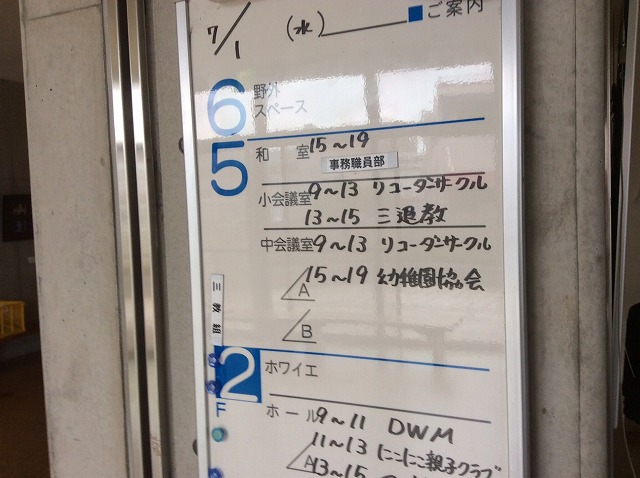 7/1 (水) ご案内
6 野外
スペース
5 和室 15~19
事務職員部
小会議室 9~13 リコーダーサークル
13~15 三退教
中会議室 9~13 リコーダーサークル
A 15~19 幼稚園協会
B
三教組
2F ホワイエ
ホール 9~11 DWM
11~13 にこにこ親子クラブ
A 13~15